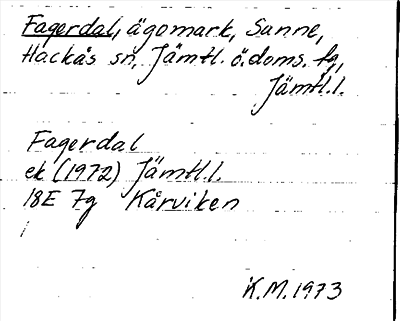 Fagerdal, ägomark, Sunne,
Hackås sn, Jämtl. ö. doms. fg,
Jämtl.l.
Fagerdal
ek (1972) Jämtl.l.
18E 7g Kårviken
K.M. 1973